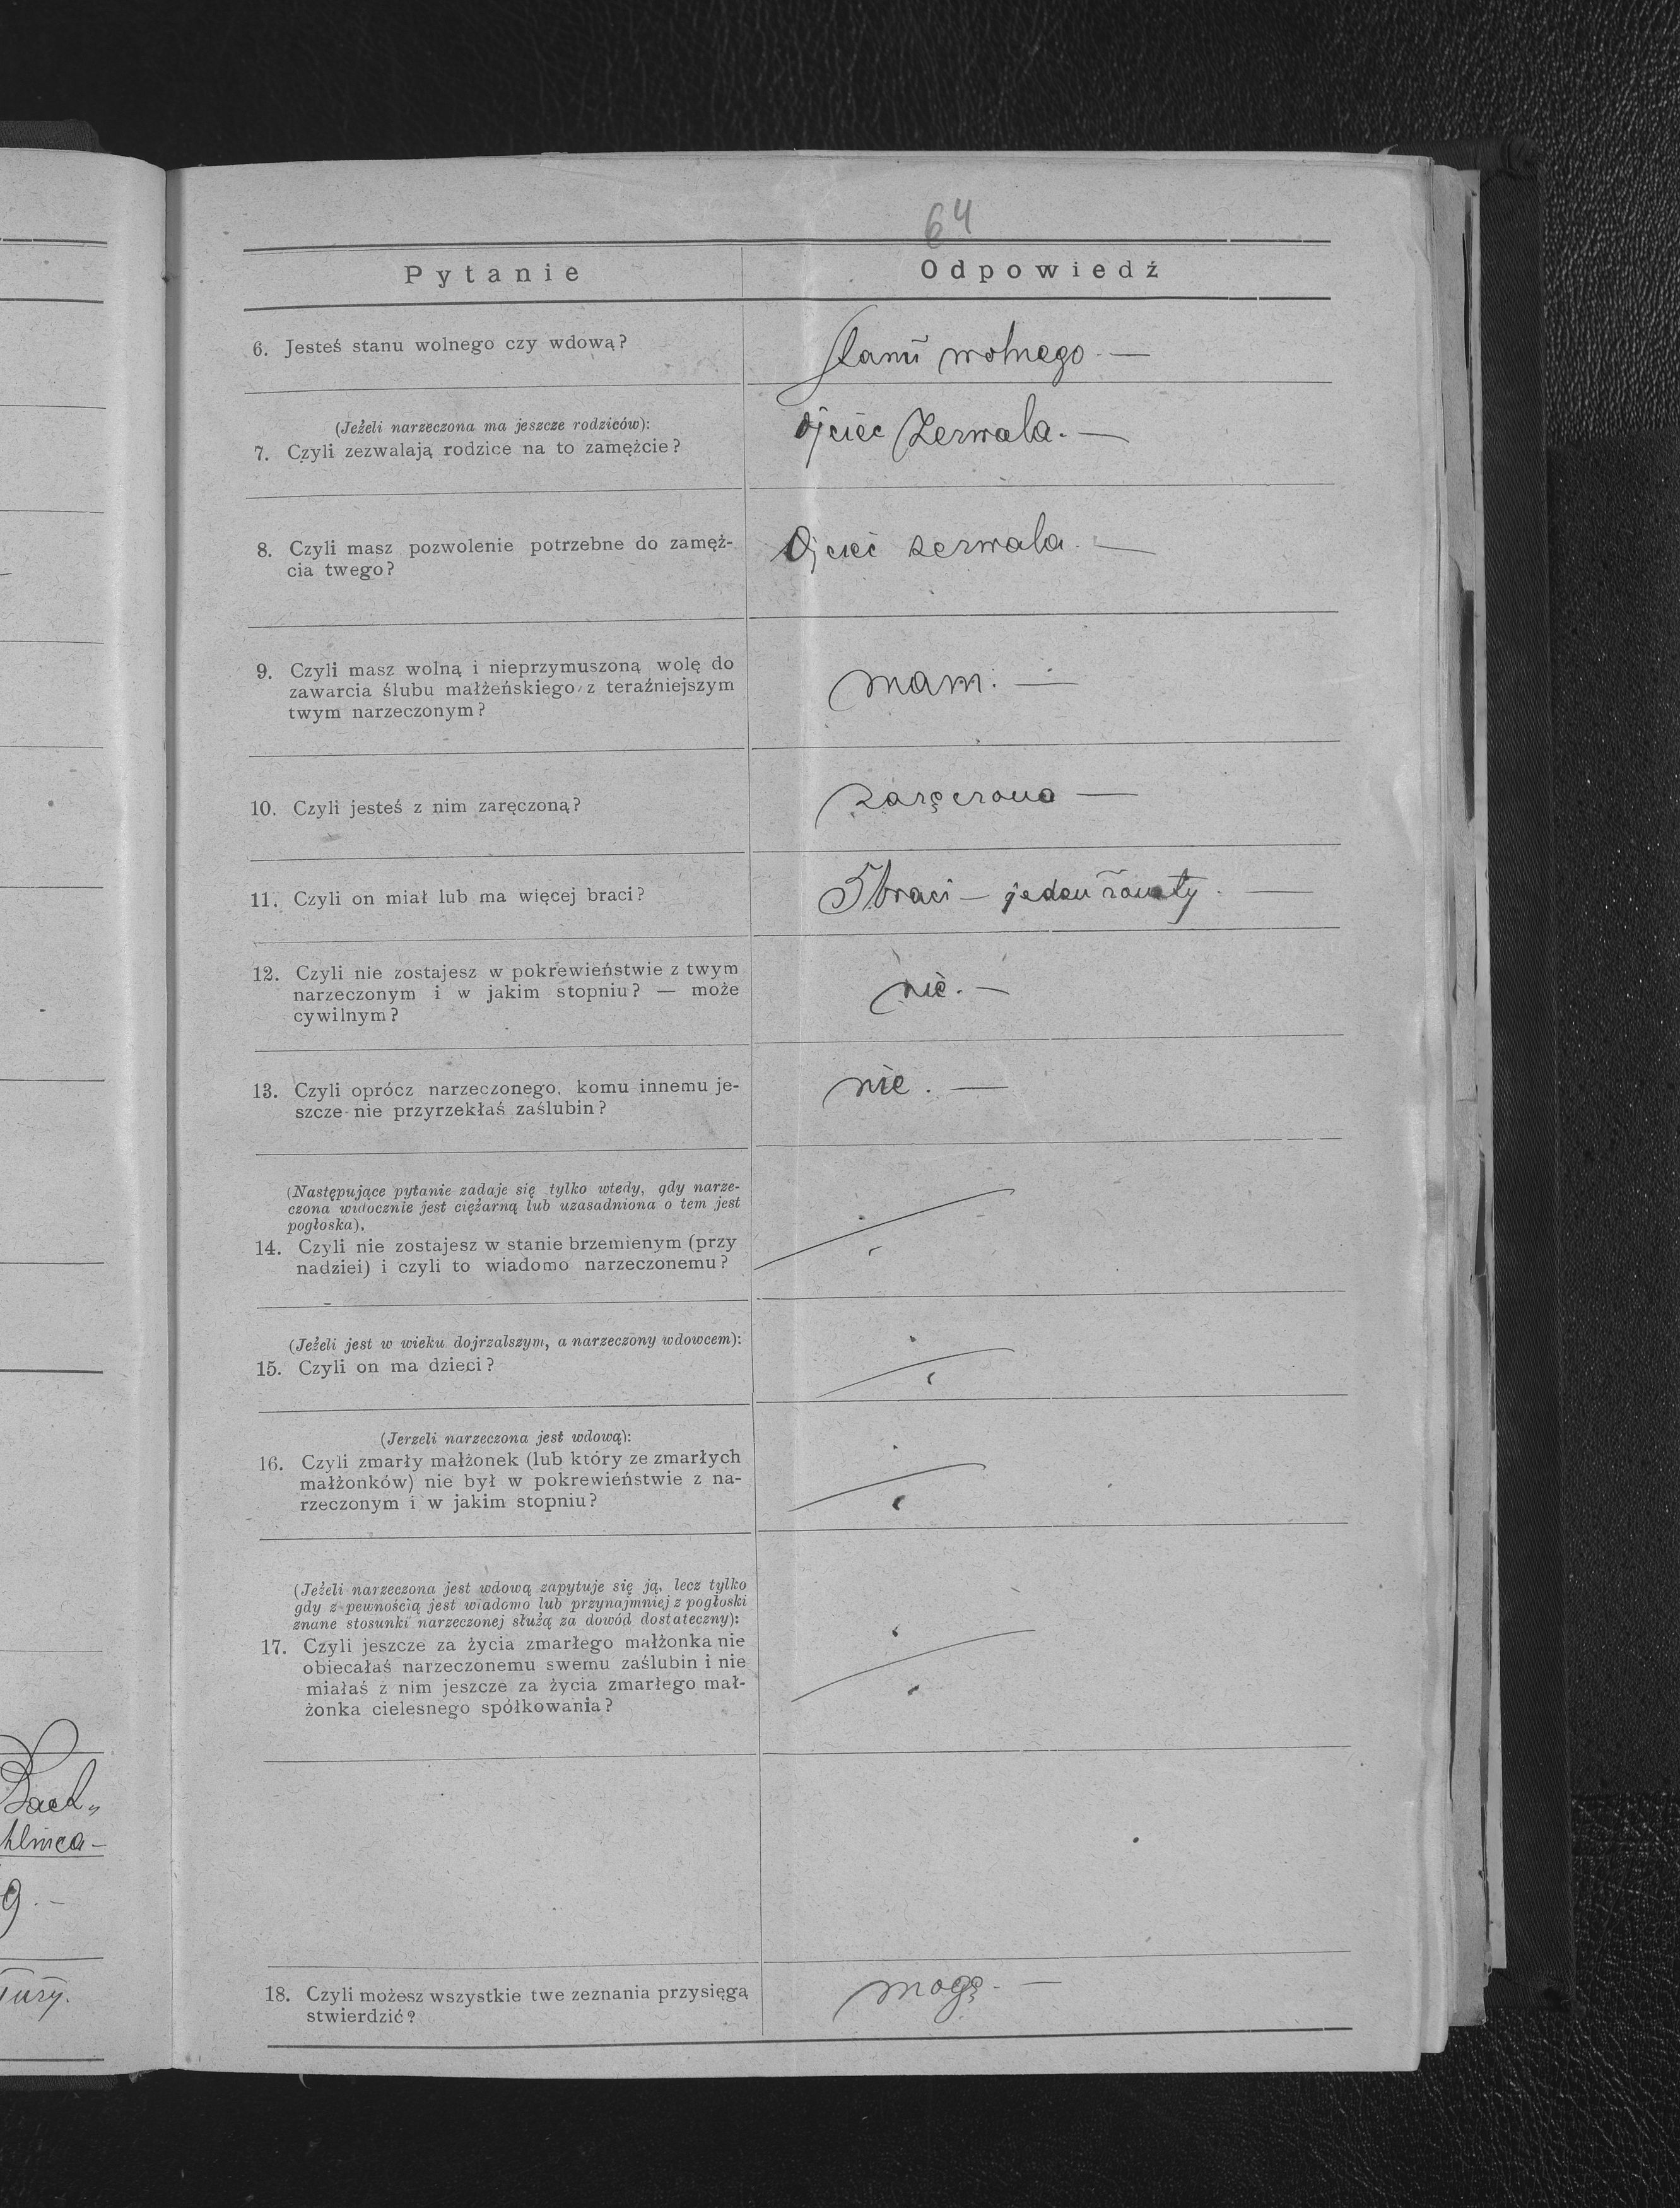 64
Pytanie
Odpowiedź
6. Jesteś stanu wolnego czy wdową?
stanu wolnego. —
(Jeżeli narzeczona ma jeszcze rodziców):
7. Czyli zezwalają rodzice na to zamężcie?
Ojciec zezwala. —
8. Czyli masz pozwolenie potrzebne do zamęż-
cia twego?
Ojciec zezwala. —
9. Czyli masz wolną i nieprzymuszoną wolę do
zawarcia ślubu małżeńskiego z teraźniejszym
twym narzeczonym?
mam. —
10. Czyli jesteś z nim zaręczoną?
zaręczona —
11. Czyli on miał lub ma więcej braci?
5 braci – jeden żonaty. —
12. Czyli nie zostajesz w pokrewieństwie z twym
narzeczonym i w jakim stopniu? — może
cywilnym?
nie. —
13. Czyli oprócz narzeczonego, komu innemu je-
szcze nie przyrzekłaś zaślubin?
nie. —
(Następujące pytanie zadaje się tylko wtedy, gdy narze-
czona widocznie jest ciężarną lub uzasadniona o tem jest
pogłoska),
14. Czyli nie zostajesz w stanie brzemienym (przy
nadziei) i czyli to wiadomo narzeczonemu?
(Jeżeli jest w wieku dojrzalszym, a narzeczony wdowcem):
15. Czyli on ma dzieci?
(Jerzeli narzeczona jest wdową):
16. Czyli zmarły małżonek (lub który ze zmarłych
małżonków) nie był w pokrewieństwie z na-
rzeczonym i w jakim stopniu?
(Jeżeli narzeczona jest wdową zapytuje się ją, lecz tylko
gdy z pewnością jest wiadomo lub przynajmniej z pogłoski
znane stosunki narzeczonej służą za dowód dostateczny):
17. Czyli jeszcze za życia zmarłego małżonka nie
obiecałaś narzeczonemu swemu zaślubin i nie
miałaś z nim jeszcze za życia zmarłego mał-
żonka cielesnego spółkowania?
18. Czyli możesz wszystkie twe zeznania przysięgą
stwierdzić?
mogę. —